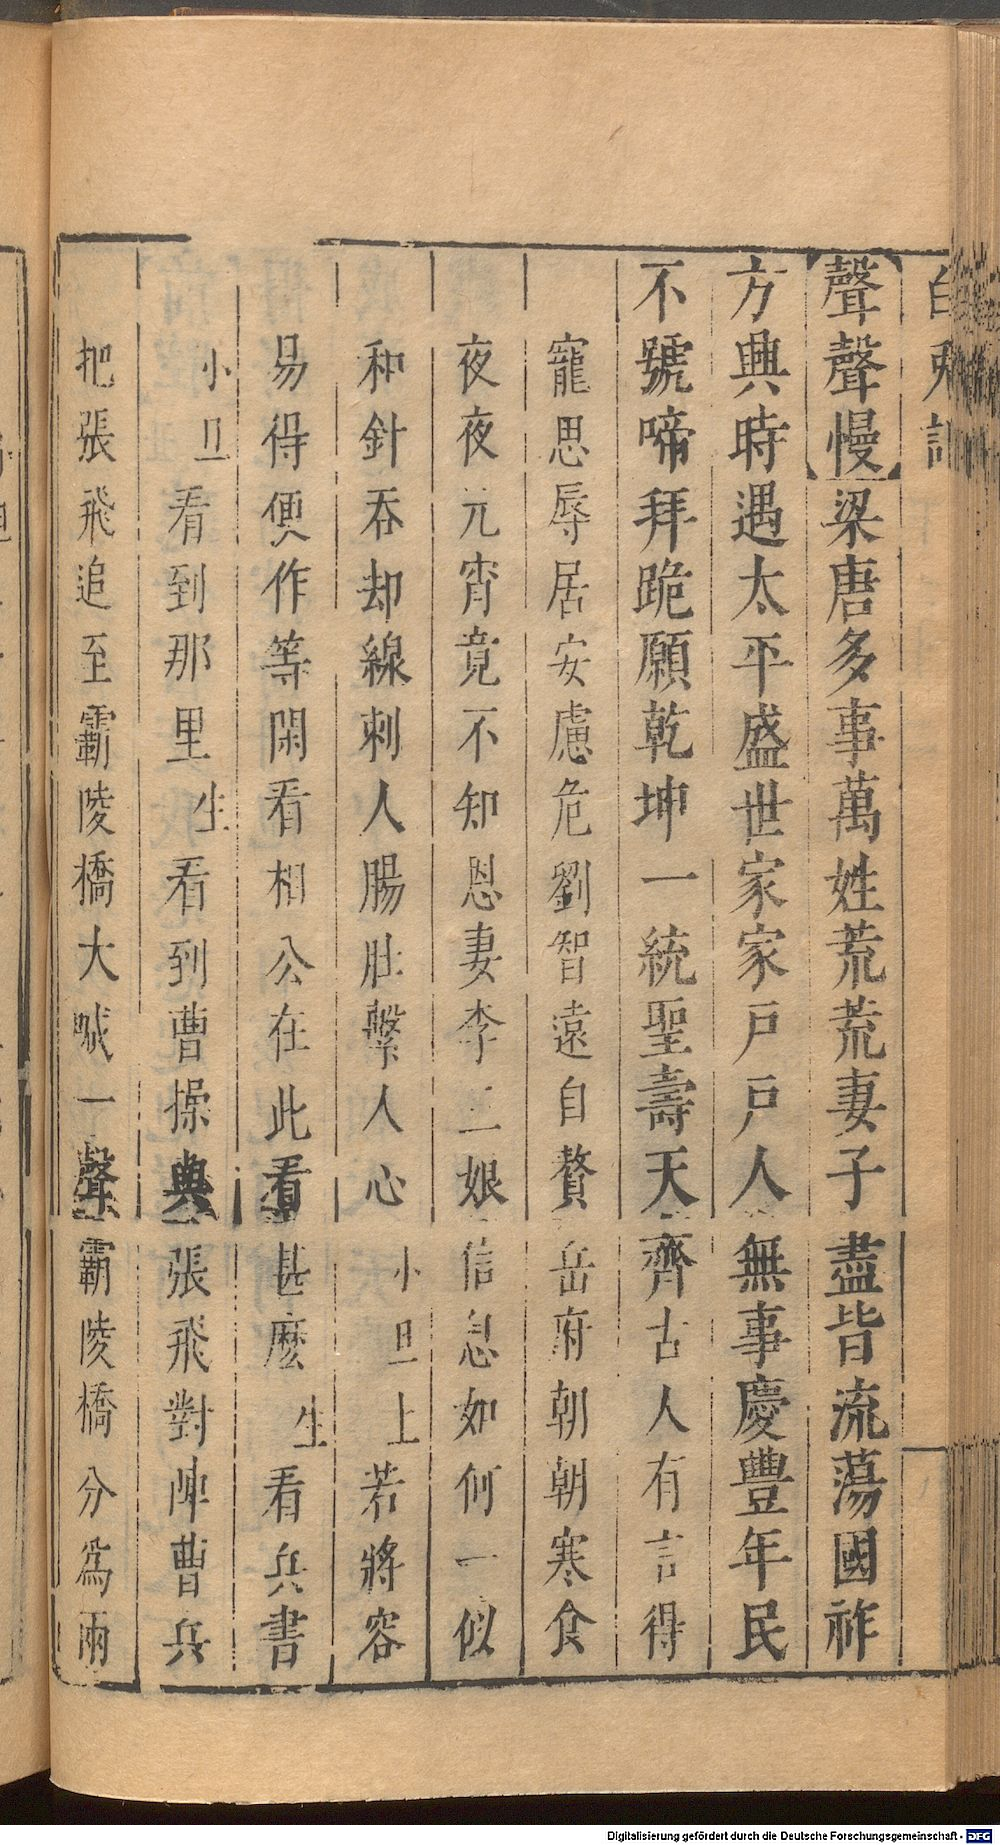 白兔記
【聲聲慢】梁唐多事萬姓荒荒妻子盡皆流蕩國祚
方興時遇太平盛世家家戶戶人無事慶豐年民
不號啼拜跪願乾坤一統聖壽天齊古人有言得
寵思辱居安慮危劉智遠自贅岳府朝朝寒食
夜夜元宵竟不知恩妻李三娘信息如何一似
和針吞却線刺人腸肚繫人心小旦上若將容
易得便作等閑看相公在此看甚麽生看兵書
小旦看到那里生看到曹操與張飛對陣曹兵
把張飛追至霸陵橋大喊一聲霸陵橋分爲兩
Digitalisierung gefördert durch die Deutsche Forschungsgemeinschaft - DFG